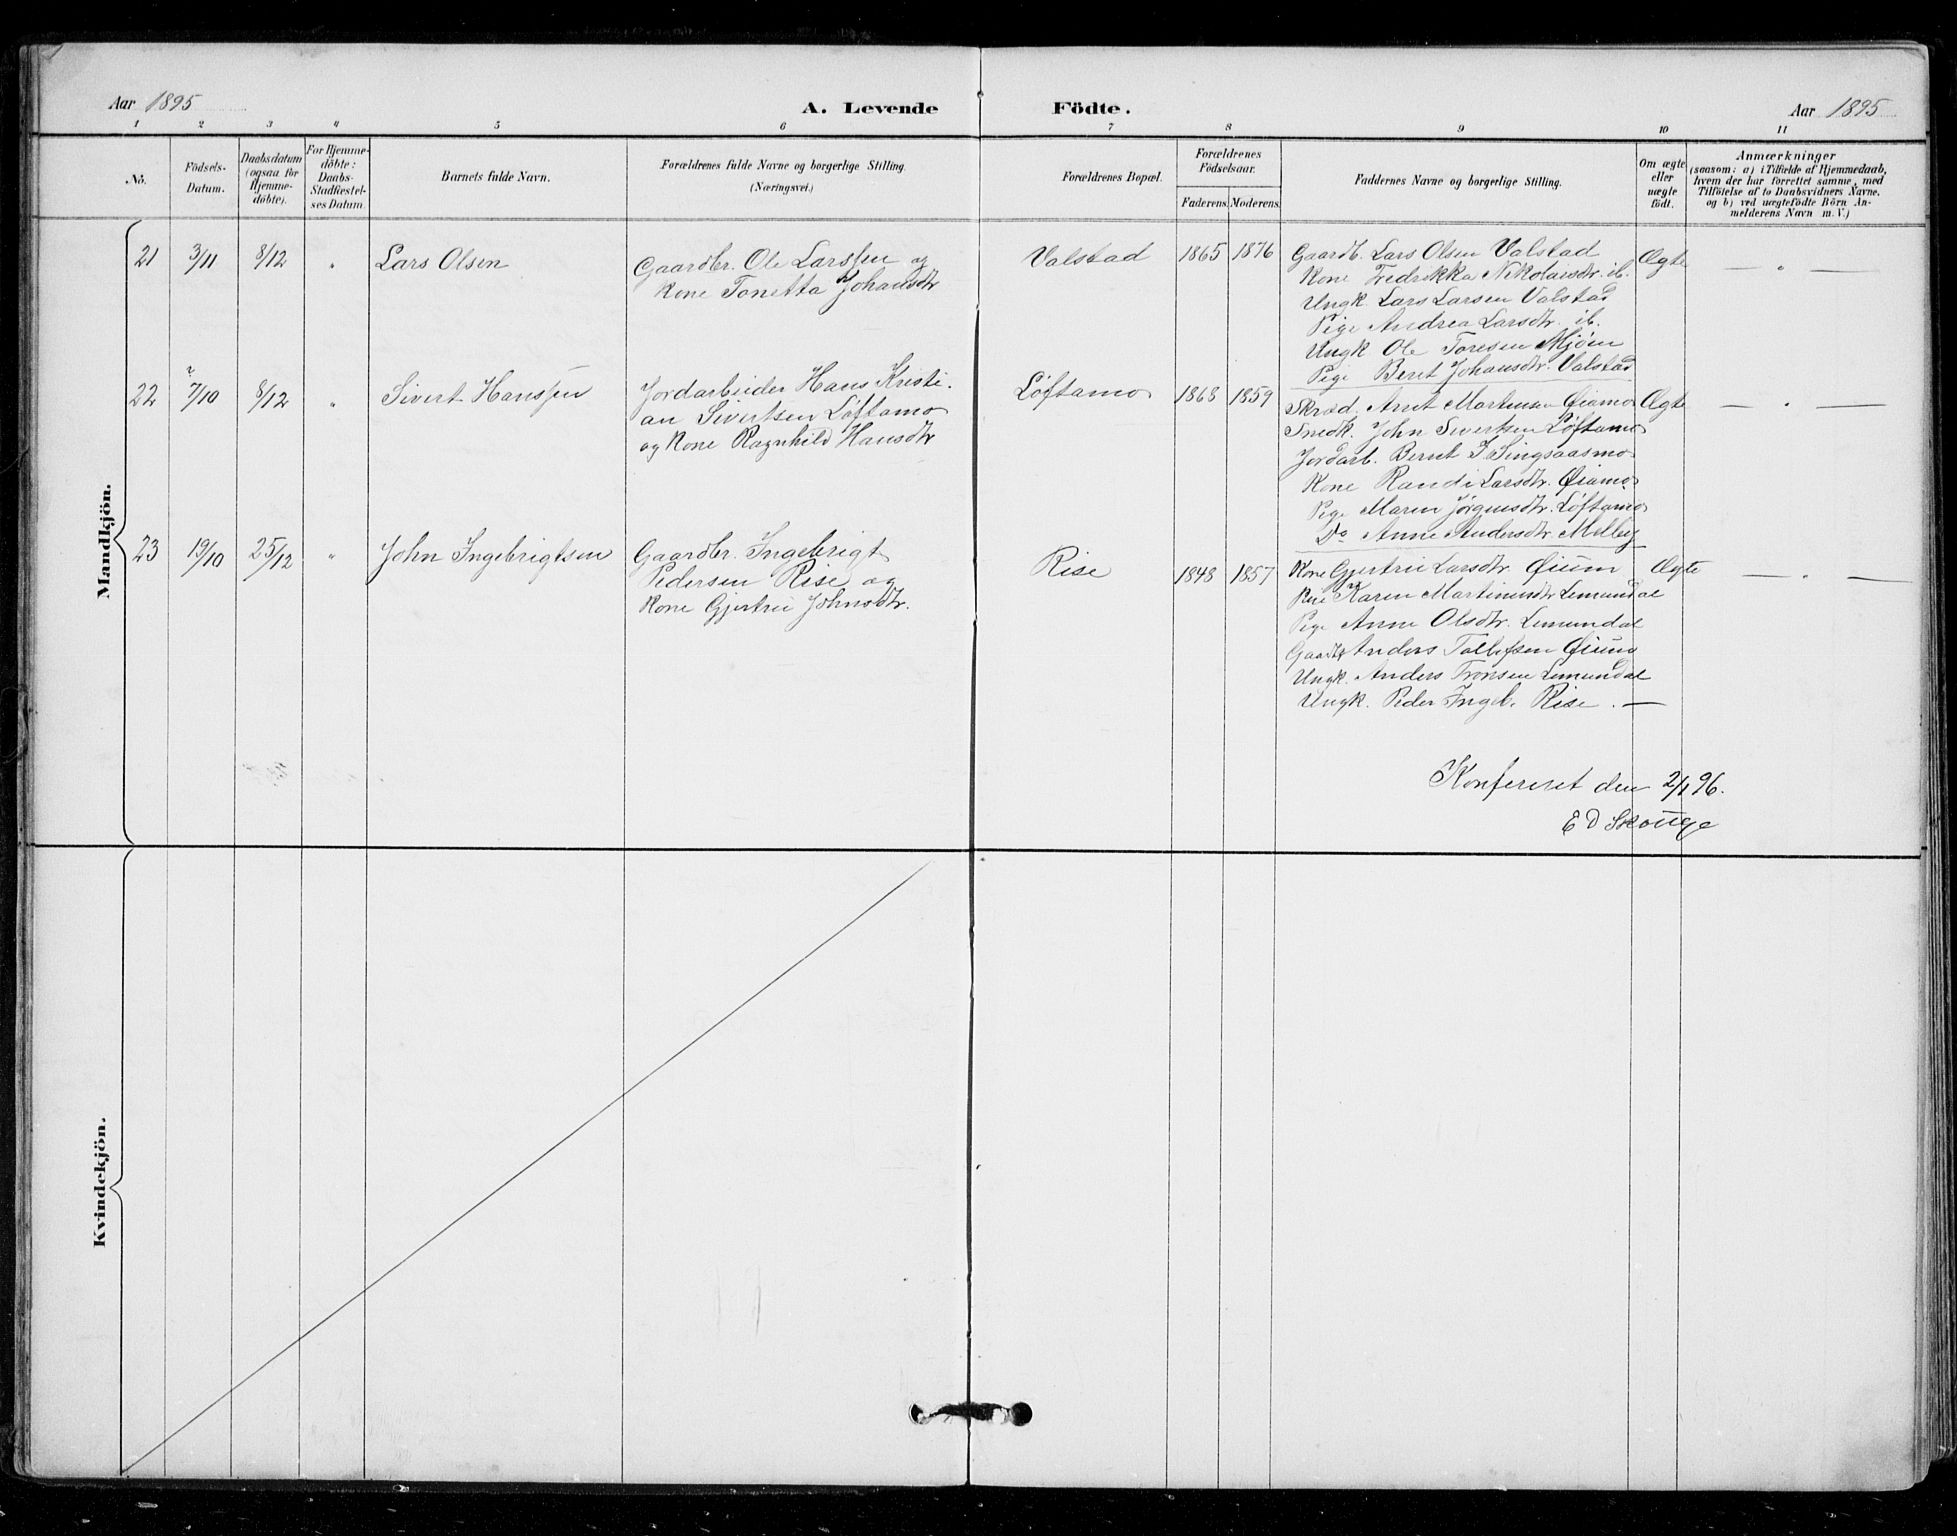 Aar 1895
A. Levende Födte.
Aar 1895
1 2 3 4 5 6 7 8 9 10 11
No.
Födsels-Datum.
Daabsdatum (ogsaa for Hjemme-döbte).
For Hjemme-döbte: Daabs-Stadfæstel-ses Datum.
Barnets fulde Navn.
Forældrenes fulde Navne og borgerlige Stilling.
(Næringsvei.)
Forældrenes Bopæl.
Forældrenes Födselsaar.
Faderens. Moderens.
Faddernes Navne og borgerlige Stilling.
Om ægte eller uægte födt.
Anmærkninger
(saasom: a) i Tilfælde af Hjemmedaab,
hvem der har forrettet samme, med
Tilföielse af to Daabsvidners Navne,
og b) ved uægtefödte Börn An-
melderens Navn m. V.)
Mandkjön.
21 3/11 8/12 " Lars Olsen
Gaardbr. Ole Larssen og
Kone Tonetta Johansdtr
Valstad 1865 1876
Gaardb. Lars Olsen Valstad
Kone Fredrikka Nikolarsdtr. ib.
Ungk. Lars Larsen Valstad
Pige Andrea Larsdtr. ib.
Ungk Ole Toresen Mjøen
Pige Beret Johansdtr. Valstad
Ægte — " —
22 7/10 8/12 " Sivert Hanssen
Jordarbeider Hans Kristi-
an Sivertsen Løftamo
og Kone Ragnhild Hansdtr
Løftamo 1868 1859
Skræd. Arnt Martinsen Øiamo
Snedk. John Sivertsen Løftamo
Jordarb. Bernt I Singsaasmo
Kone Randi Larsdtr. Øiamo
Pige Maren Jørgensdtr. Løftamo
Do Anne Andersdtr. Melby
Ægte — " —
23 19/10 25/12 " John Ingebrigtsen
Gaardbr. Ingebrigt
Pedersen Rise og
Kone Gjertru Johnsdtr.
Rise 1848 1857
Kone Gjertru Larsdtr. Øium
Karen Martinusdtr Lemundal
Pige Anne Olsdtr. Lemundal
Gaardb Anders Tollefsen Øium
Ungk. Anders Tronsen Lemundal
Ungk. Peder Ingeb. Rise. —
Ægte — " —
Konfereret den 2/1 96.
E D Skouge
Kvindekjön.